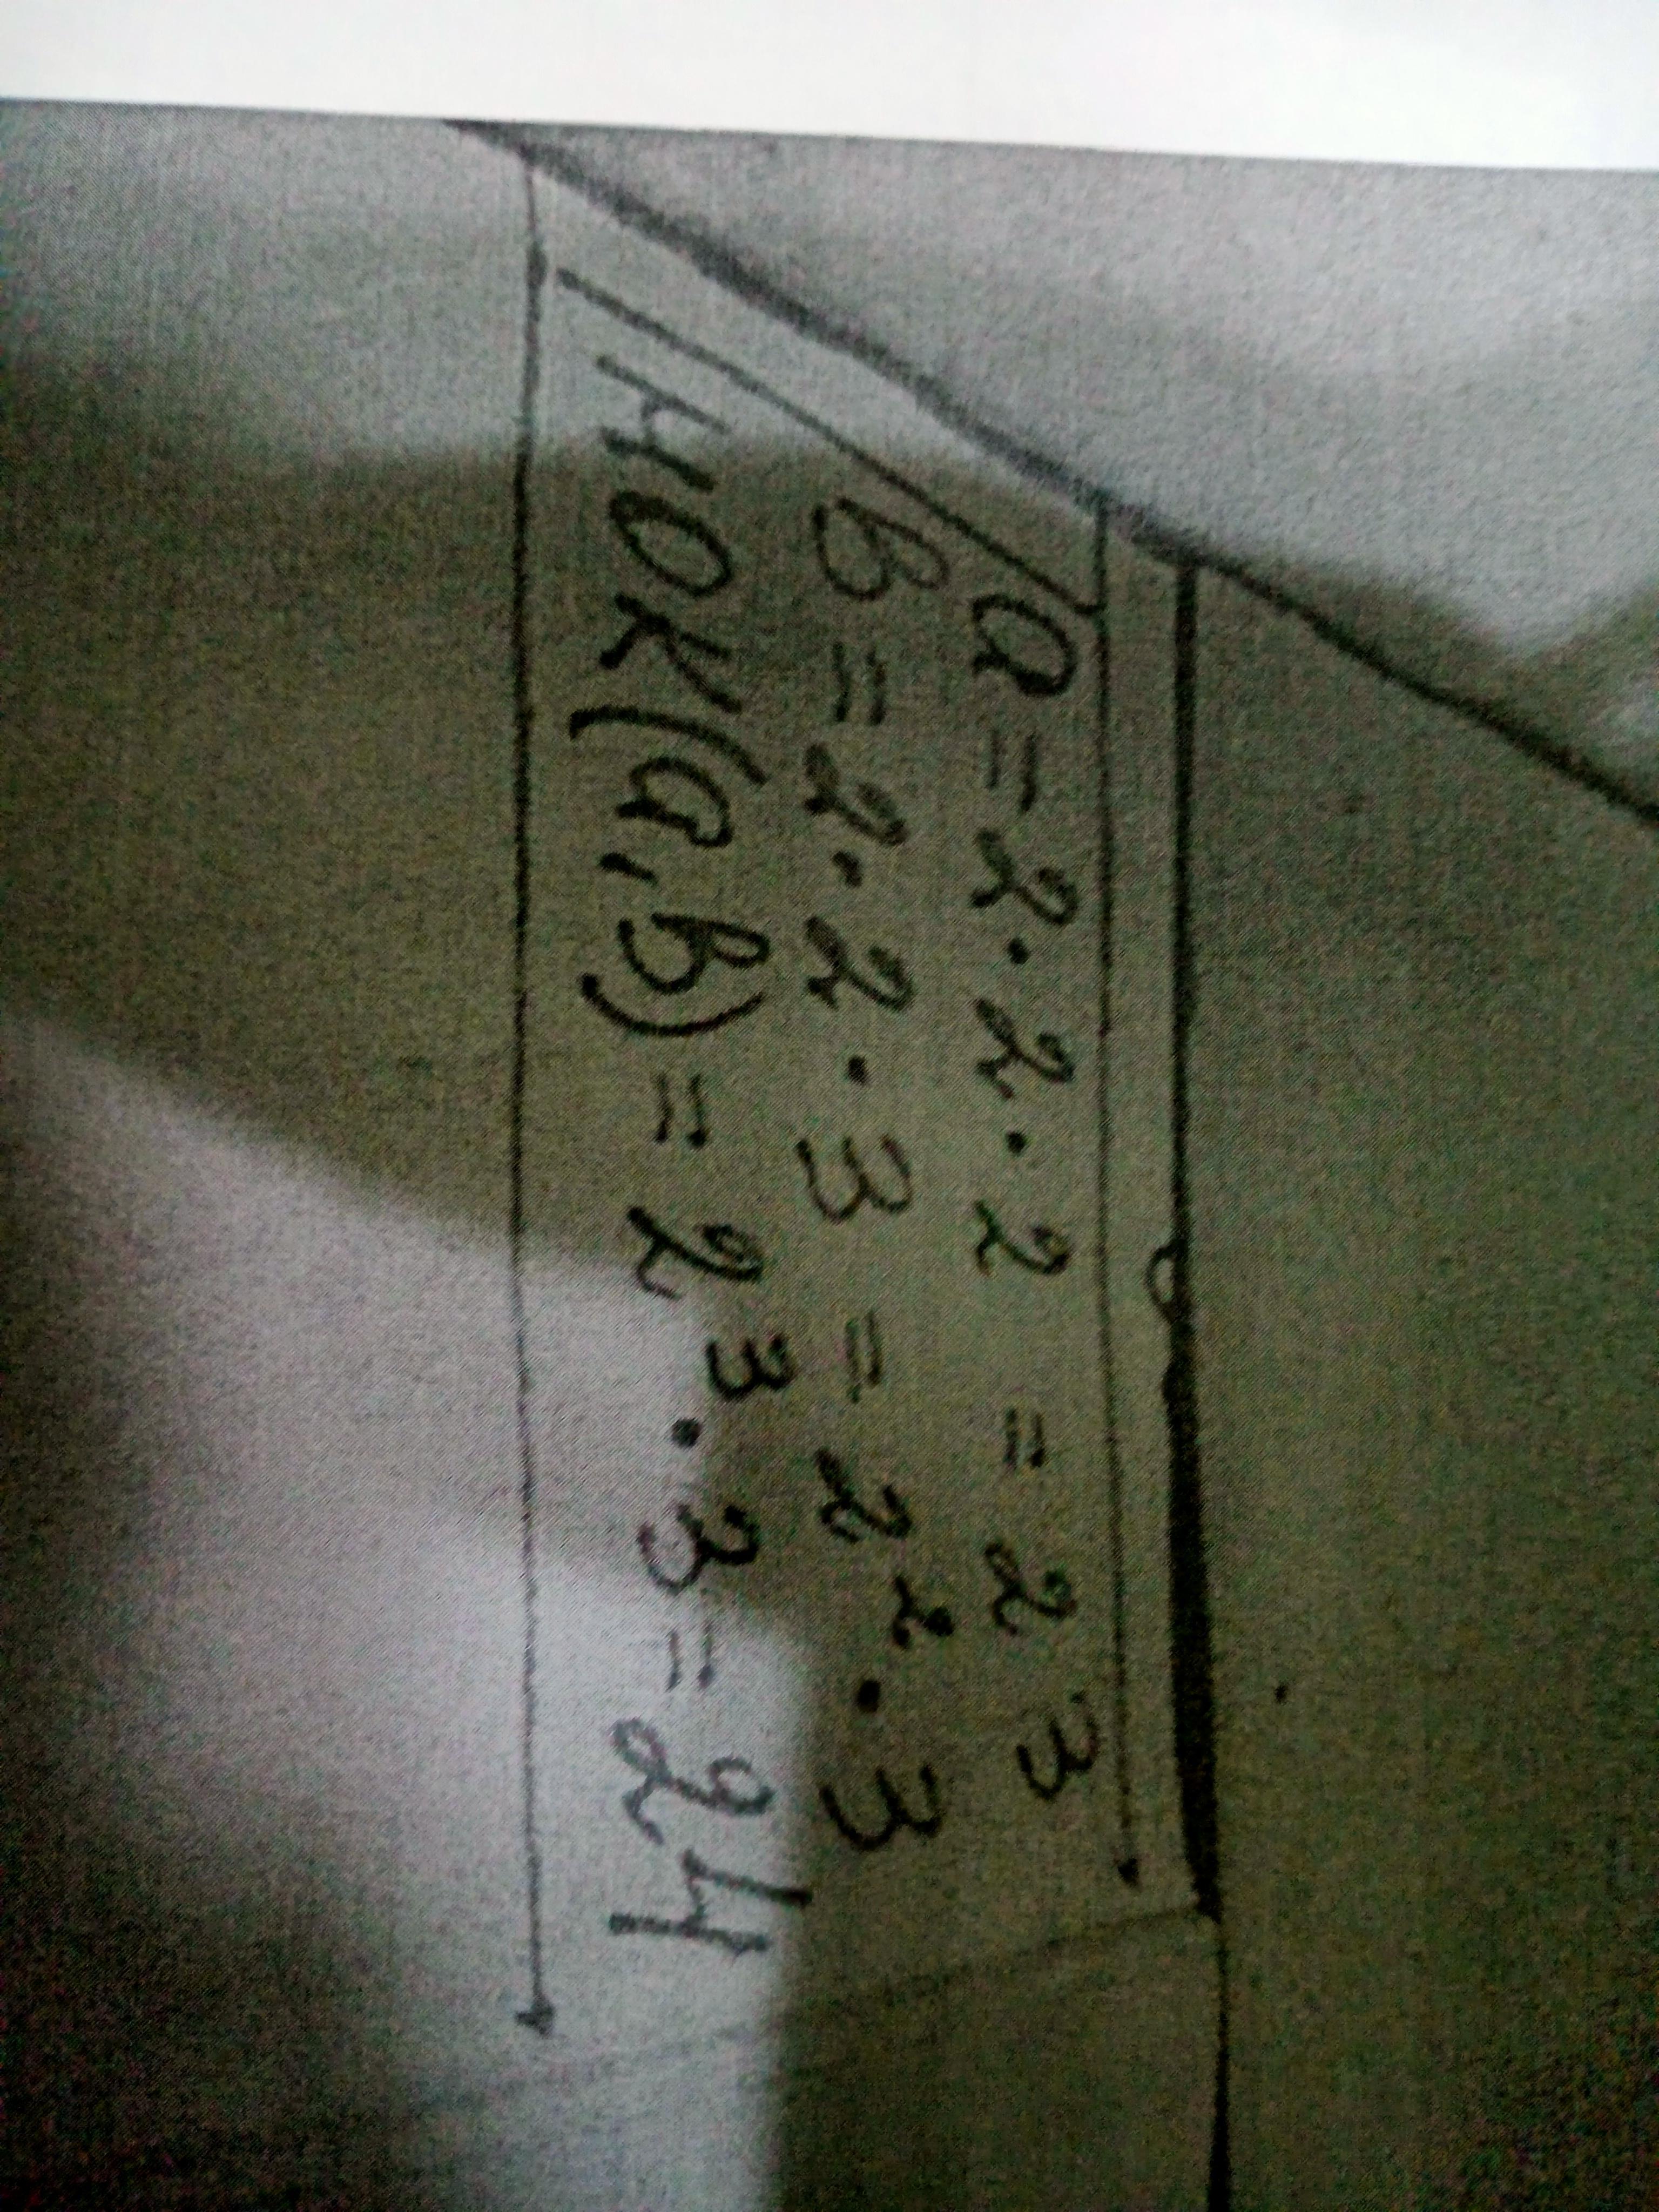 a = 2 · 2 · 2 = 2³
в = 2 · 2 · 3 = 2² · 3
НОК(а, в) = 2³ · 3 = 24